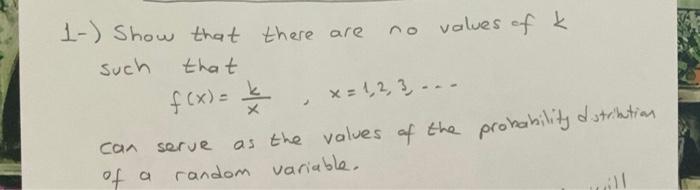 1-) Show that there are no values of k
such that
f(x) = k/x , x = 1, 2, 3, ---
can serve as the values of the probability distribution
of a random variable.
will